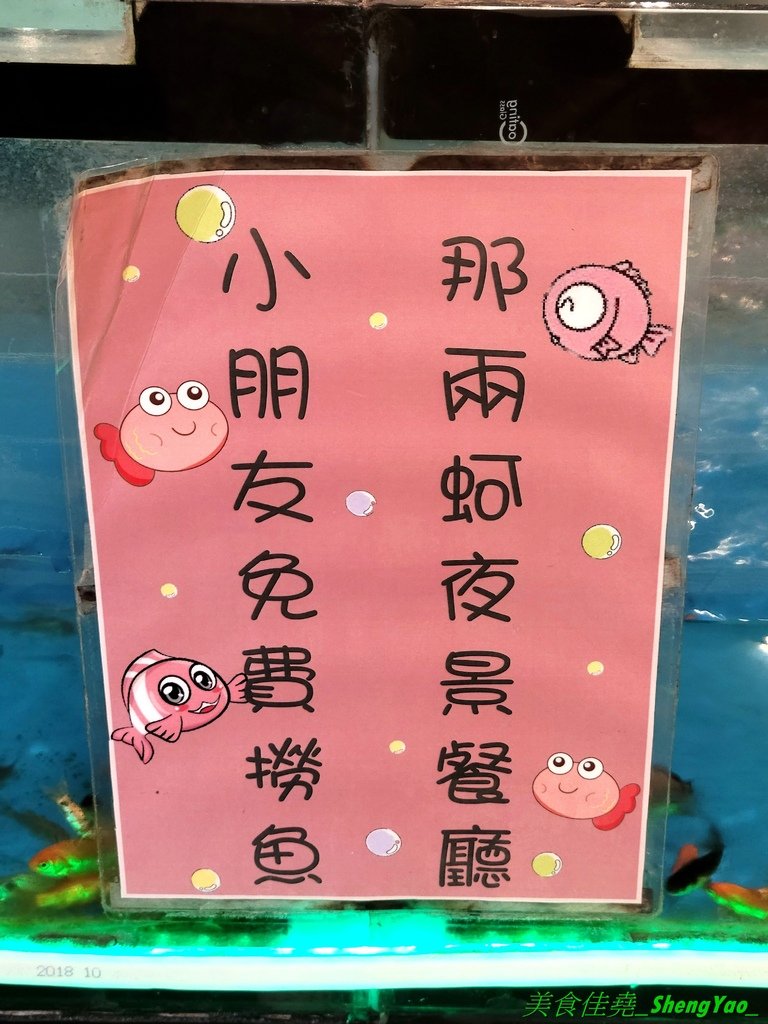 那兩蚵夜景餐廳
小朋友免費撈魚
Glass
Coating
2018 10
美食佳堯_ShengYao_